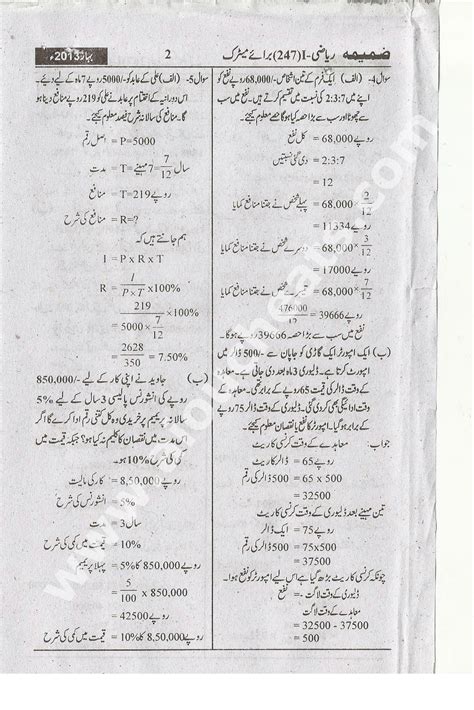 ضمیمہ ریاضی-I (247) برائے میٹرک 2 بہار 2013ء
سوال 4- (الف) ایک فرم کے تین اشخاص -/68,000 روپے نفع کو
اپنے میں 2:3:7 کی نسبت میں تقسیم کرتے ہیں۔ نفع میں سب
سے چھوٹا اور سب سے بڑا حصہ کیا ہوگا معلوم کیجئے۔
کل نفع = 68,000 روپے
دی گئی نسبتیں = 2:3:7
= 12
پہلے شخص نے جتنا منافع کمایا = 68,000× 2/12
= 11334 روپے
دوسرے شخص نے جتنا منافع کمایا = 68,000× 3/12
= 17000 روپے
تیسرے شخص نے جتنا نفع کمایا = 68,000× 7/12
= 476000/12 = 39666 روپے
نفع میں سب سے بڑا حصہ 39666 روپے ہوگا۔
(ب) ایک امپورٹر ایک گاڑی کو جاپان سے -/500 ڈالر میں
امپورٹ کرتا ہے۔ ڈلیوری 3 ماہ بعد دی جاتی ہے۔ معاہدے کے
وقت ڈالر کی قیمت 65 روپے کے برابر تھی۔
وقت ادائیگی بھی کر دی گئی۔ ڈلیوری کے وقت ڈالر 75 روپے
کے برابر ہو گیا۔ امپورٹر کا نفع یا نقصان معلوم کیجئے۔
جواب: معاہدے کے وقت کرنسی کا ریٹ
ڈالر کا ریٹ = 65 روپے
500 ڈالر کی قیمت = 65 x 500 روپے
= 32500
تین مہینے بعد ڈلیوری کے وقت کرنسی کا ریٹ
ایک ڈالر = 75 روپے
500 ڈالر کی قیمت = 75x500
= 37500 روپے
چونکہ کرنسی کا ریٹ بڑھ گیا ہے اس لیے امپورٹر کو نفع ہوا۔
نفع = ڈلیوری کے وقت لاگت -
معاہدے کے وقت لاگت
= 32500 - 37500
= 500
سوال 5- (الف) علی نے عابد کو -/5000 روپے 7 ماہ کے لیے دیئے۔
اس دورانیہ کے اختتام پر عابد نے علی کو 219 روپے منافع دینا ہو
گا۔ منافع کی سالانہ شرح فیصد معلوم کیجئے۔
اصل رقم = P=5000
مدت = T= 7 مہینے = 7/12 سال
منافع = T=219 روپے
منافع کی شرح = R=?
ہم جانتے ہیں کہ
I = P x R x T
R = I/(P×T) ×100%
= 219/(5000× 7/12) ×100%
= 2628/350 = 7.50%
(ب) جاوید نے اپنی کار کے لیے 850,000/-
روپے کی انشورنس پالیسی 3 سال کے لیے 5%
سالانہ پریمیم پر خریدی وہ کل کتنی رقم ادا کرے گا اگر
اس مدت میں نقصان کا کلیم نہ کیا ہو؟ جبکہ قیمت میں
کمی کی شرح 10% ہو۔
کار کی مالیت = 8,50,000 روپے
انشورنس کی شرح = 5%
مدت = 3 سال
قیمت میں کمی کی شرح = 10%
پہلا پریمیم = 850,000 کا 5% روپے
= 5/100 x 850,000
= 42500 روپے
قیمت میں کمی کی شرح = 8,50,000 کا 10% روپے